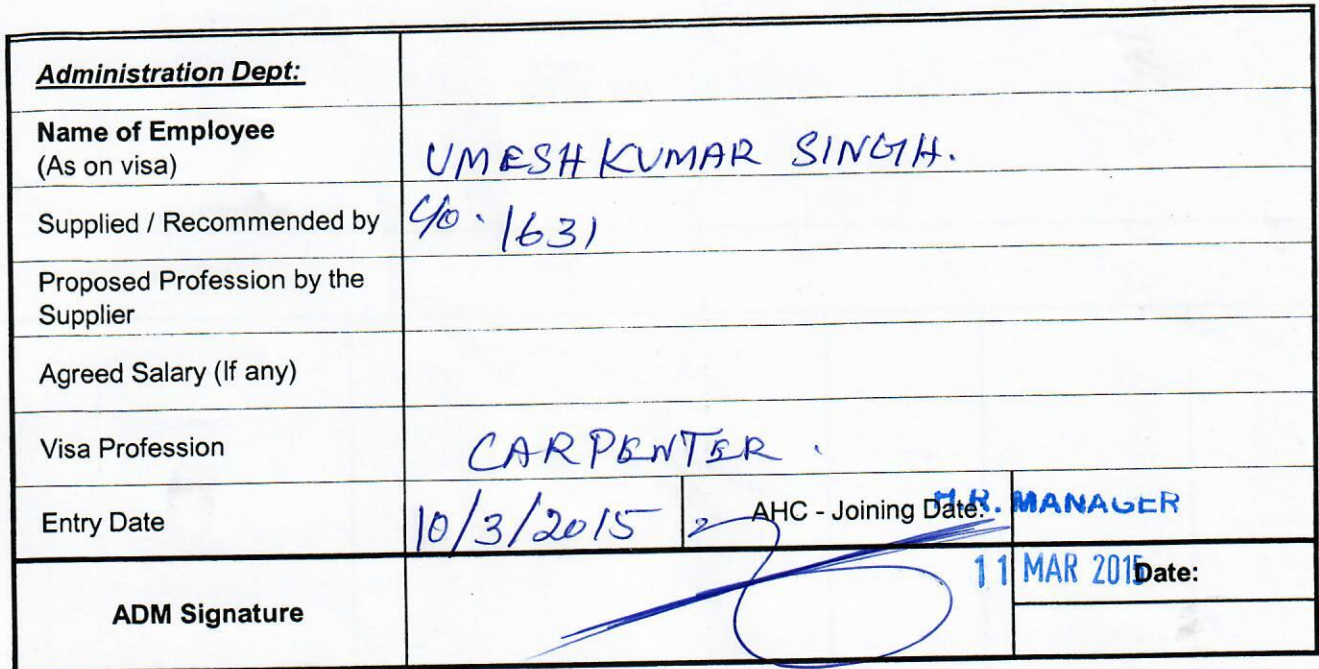 Administration Dept:
Name of Employee
(As on visa)
UMESH KUMAR SINGH.
Supplied / Recommended by
C/o. 1631
Proposed Profession by the
Supplier
Agreed Salary (If any)
Visa Profession
CARPENTER.
Entry Date
10/3/2015
AHC - Joining Date:
H.R. MANAGER
11 MAR 2015
Date:
ADM Signature